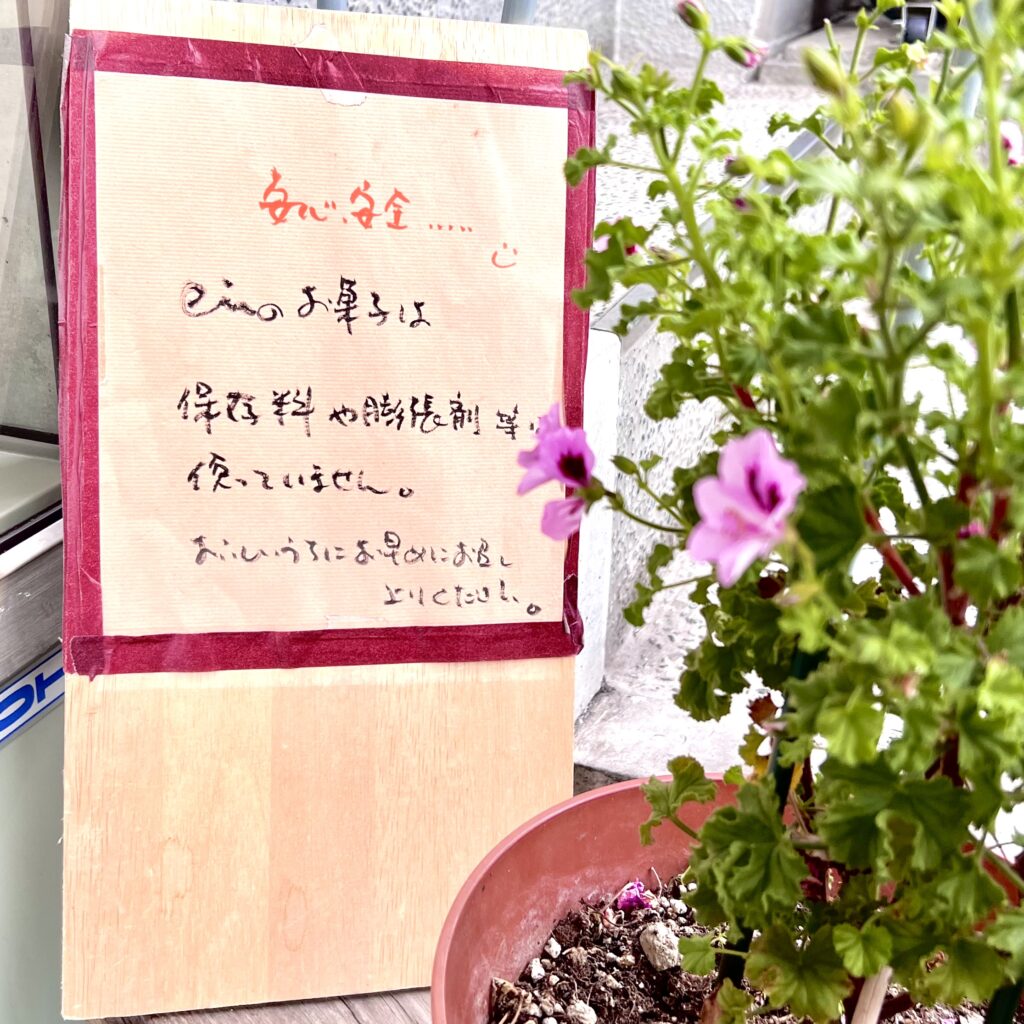 安心、安全.....
einのお菓子は
保存料や膨張剤等は
使っていません。
おいしいうちにお早めにお召し
上りください。
OH